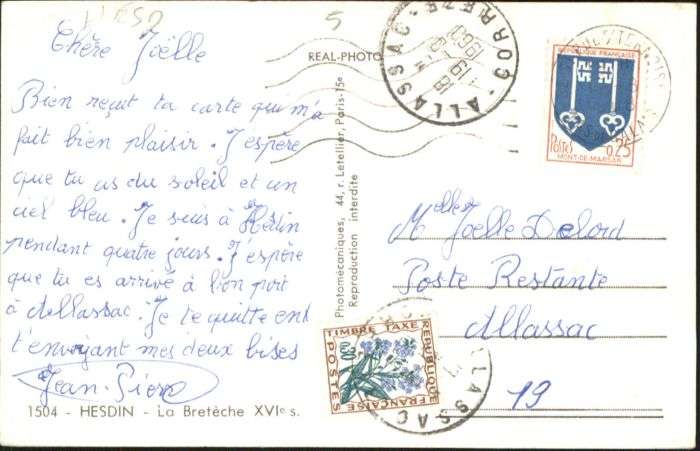 Chère Joëlle
Bien reçuit ta carte qui m'a
fait bien plaisir. J'espère
que tu as du soleil et un
ciel bleu. Je suis à Hesdin
pendant quatre jours. J'espère
que tu es arrivé à bon port
à Allassac. Je te quitte en
t'envoyant mes deux bises
Jean-Pierre
1504 - HESDIN - La Bretèche XVIe s.
5
REAL-PHOTO
Photomécaniques, 44, r. Letellier, Paris-15e
Reproduction interdite
ALLASSAC
CORREZE
REPUBLIQUE FRANÇAISE
Postes 0,25
MONT-DE-MARSAN
Melle Joelle Delord
Poste Restante
Allassac
19
TIMBRE TAXE
REPUBLIQUE
FRANÇAISE
POSTES